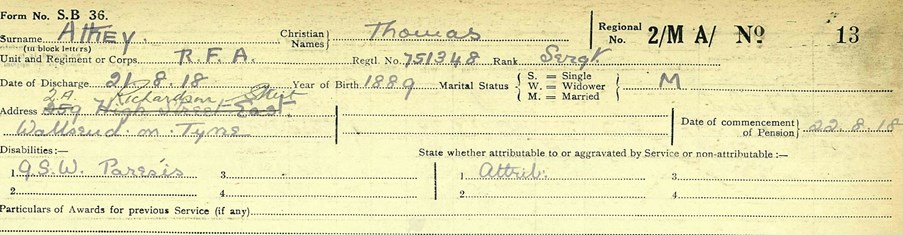 Form No. S.B 36.
Surname Athey. Christian Names Thomas Regional No. 2/M A/ No 13
(in block letters)
Unit and Regiment or Corps. R.F.A. Regtl. No. 751348 Rank Sergt.
Date of Discharge 21.8.18 Year of Birth 1889 Marital Status S. = Single W. = Widower M. = Married M
2A. Richardson Street
Address 259 High Street East.
Wallsend-on-Tyne Date of commencement of Pension 22.8.18
Disabilities:— State whether attributable to or aggravated by Service or non-attributable:—
1 G.S.W. Paresis 3. 1 Attrib. 3.
2 4. 2 4.
Particulars of Awards for previous Service (if any)